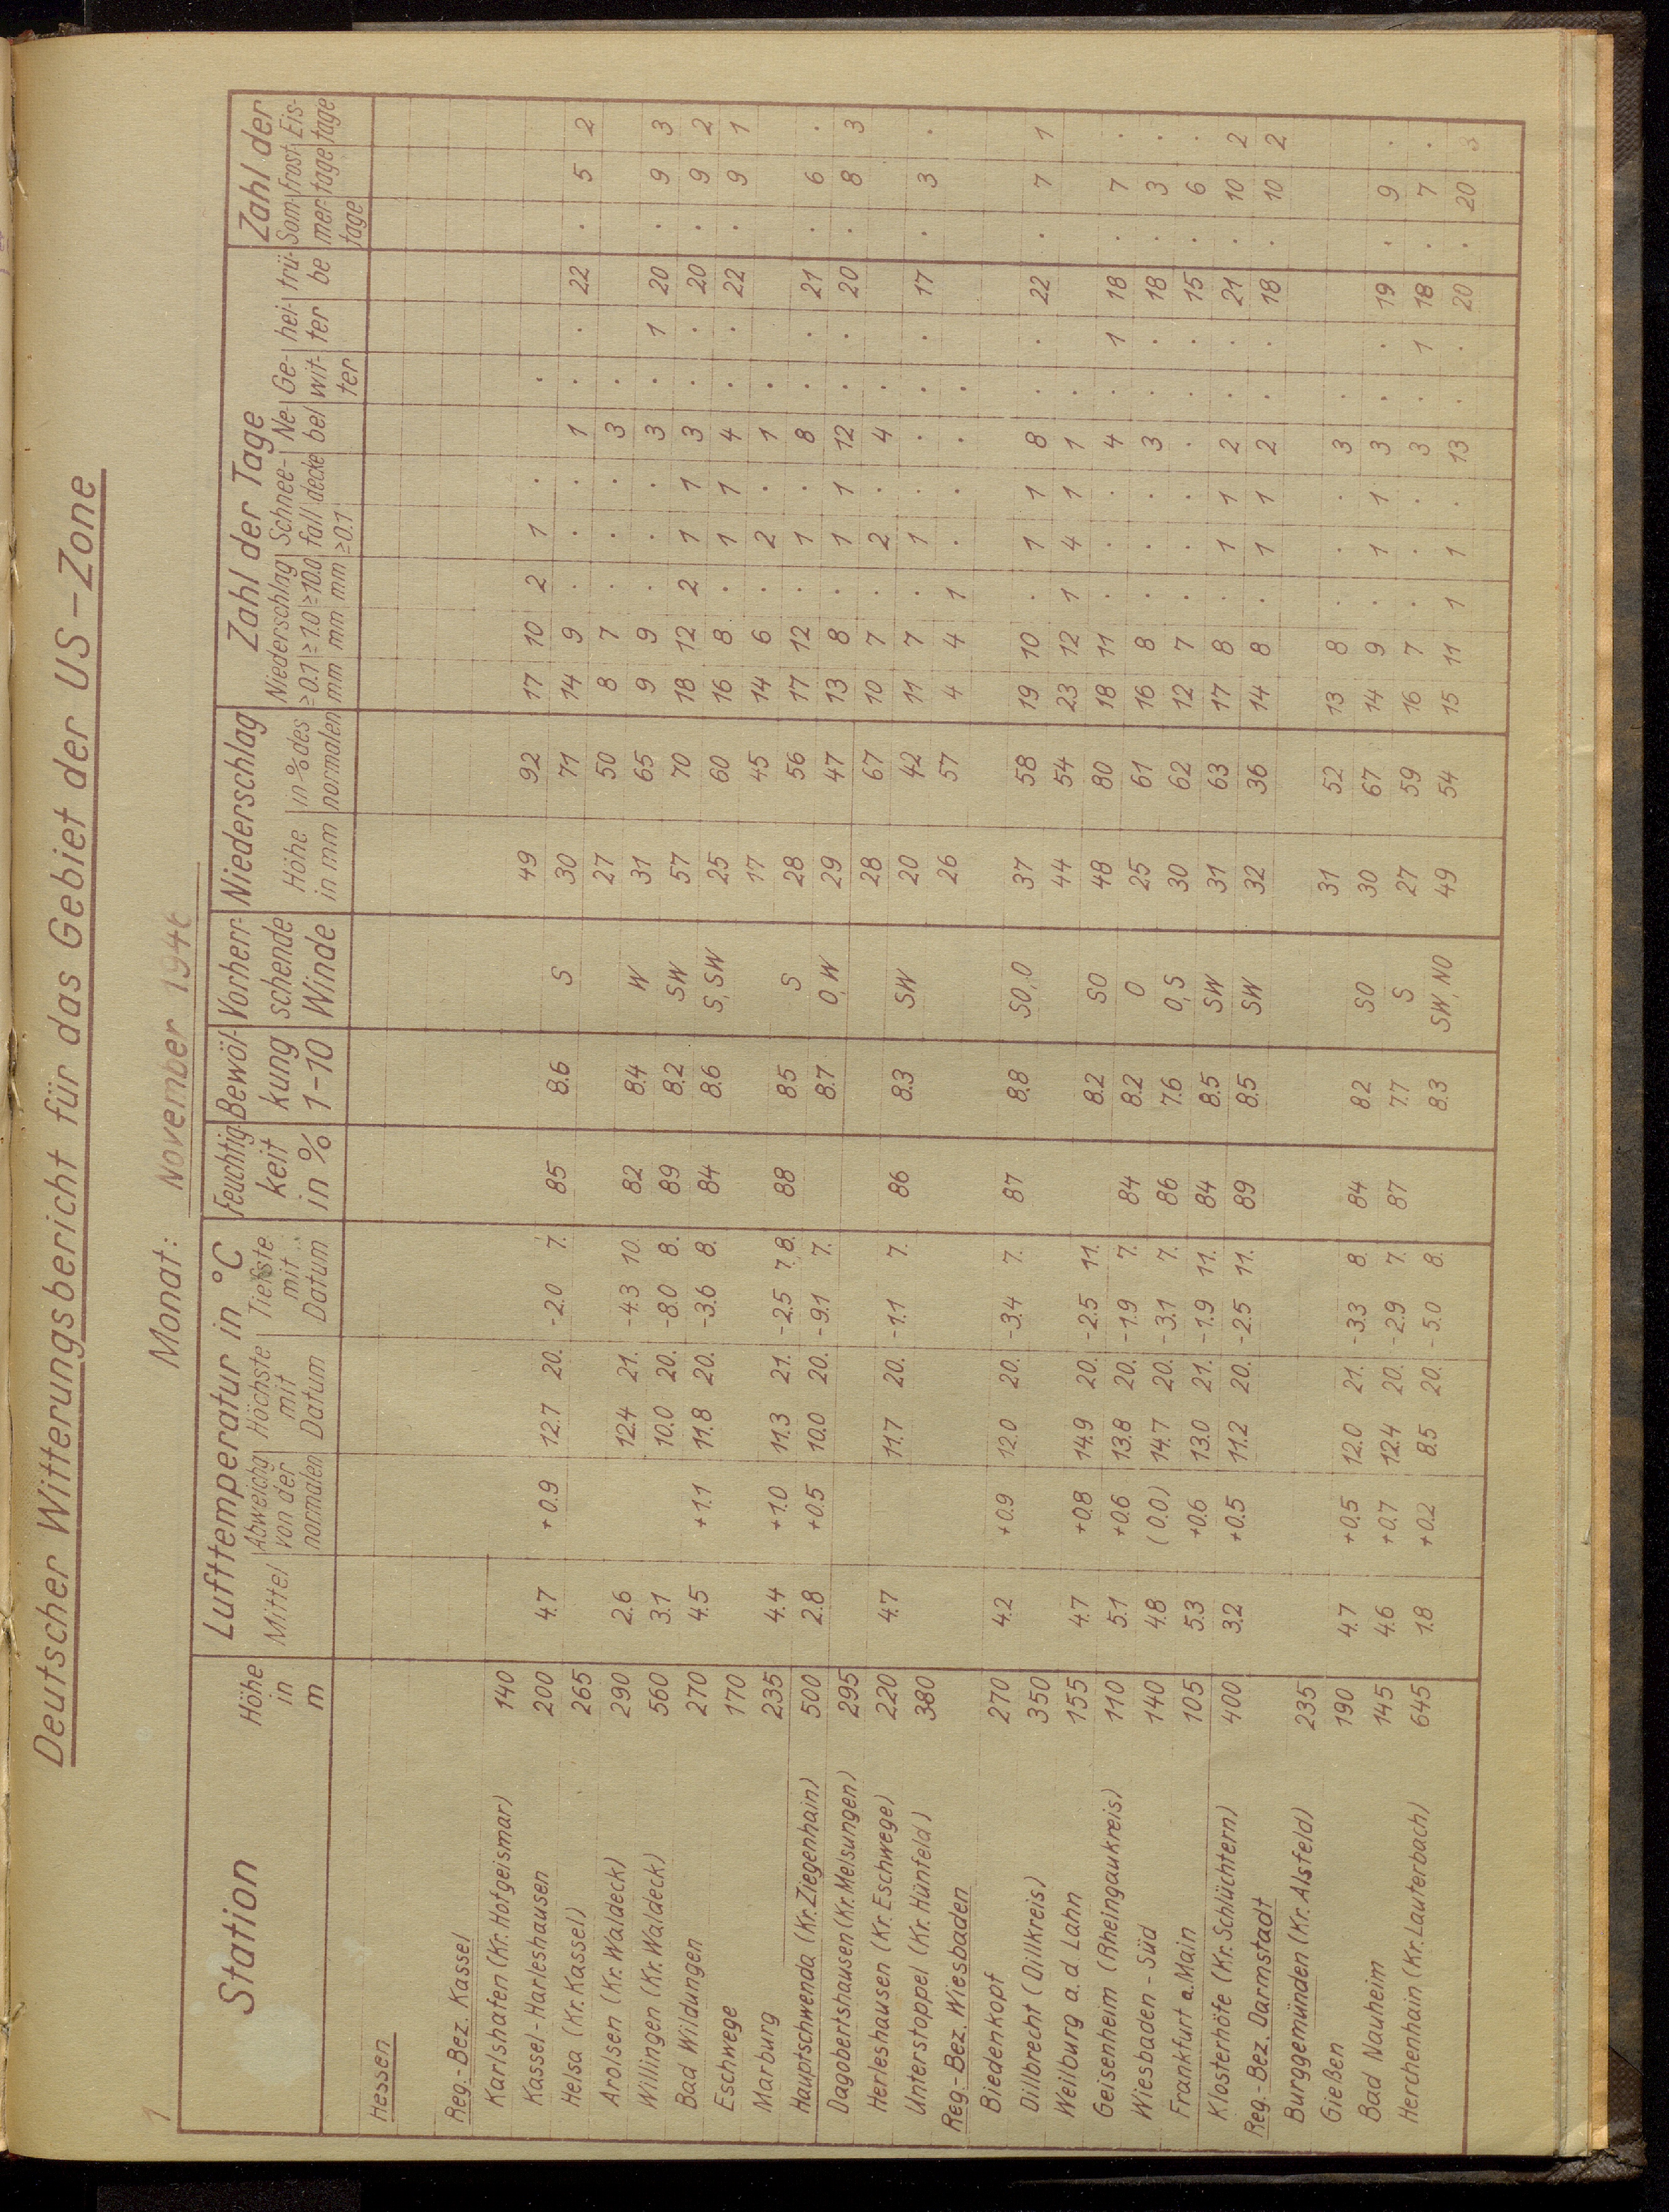 1
Deutscher Witterungsbericht für das Gebiet der US-Zone
Monat: November 1946
Station Höhe in m Lufttemperatur in °C Feuchtig- keit in % Bewöl- kung 1-10 Vorherr- schende Winde Niederschlag Zahl der Tage Zahl der
Mittel Abweichg von der normalen Höchste mit Datum Tiefste mit Datum Höhe in mm in % des normalen Niederschlag ≥0.1 mm ≥1.0 mm ≥10.0 mm Schnee- fall ≥0.1 decke Ne bel Ge- wit- ter hei- ter trü- be Som- mer- tage Frost- tage Eis- tage
Hessen
Reg.-Bez. Kassel
Karlshafen (Kr. Hofgeismar) 140 49 92 17 10 2 1 . .
Kassel-Harleshausen 200 4.7 +0.9 12.7 20. -2.0 7. 85 8.6 S 30 71 14 9 . . . 1 . . 22 . 5 2
Helsa (Kr. Kassel) 265 27 50 8 7 . . . 3 .
Arolsen (Kr. Waldeck) 290 2.6 12.4 21. -4.3 10. 82 8.4 W 31 65 9 9 . . . 3 . 1 20 . 9 3
Willingen (Kr. Waldeck) 560 3.1 10.0 20. -8.0 8. 89 8.2 SW 57 70 18 12 2 1 1 3 . . 20 . 9 2
Bad Wildungen 270 4.5 +1.1 11.8 20. -3.6 8. 84 8.6 S, SW 25 60 16 8 . 1 1 4 . . 22 . 9 1
Eschwege 170 17 45 14 6 . 2 . 1 .
Marburg 235 4.4 +1.0 11.3 21. -2.5 7. 8. 88 8.5 S 28 56 17 12 . 1 . 8 . . 21 . 6 .
Hauptschwenda (Kr. Ziegenhain) 500 2.8 +0.5 10.0 20. -9.1 7. 8.7 O, W 29 47 13 8 . 1 1 12 . . 20 . 8 3
Dagobertshausen (Kr. Melsungen) 295 28 67 10 7 . 2 . 4 .
Herleshausen (Kr. Eschwege) 220 4.7 11.7 20. -1.1 7. 86 8.3 SW 20 42 11 7 . 1 . . . . 17 . 3 .
Unterstoppel (Kr. Hünfeld) 380 26 57 4 4 1 . . . .
Reg.-Bez. Wiesbaden
Biedenkopf 270 4.2 +0.9 12.0 20. -3.4 7. 87 8.8 SO, O 37 58 19 10 . 1 1 8 . . 22 . 7 1
Dillbrecht (Dillkreis) 350 44 54 23 12 1 4 1 1 .
Weilburg a. d. Lahn 155 4.7 +0.8 14.9 20. -2.5 11. 8.2 SO 48 80 18 11 . . . 4 . 1 18 . 7 .
Geisenheim (Rheingaukreis) 110 5.1 +0.6 13.8 20. -1.9 7. 84 8.2 O 25 61 16 8 . . . 3 . . 18 . 3 .
Wiesbaden - Süd 140 4.8 (0.0) 14.7 20. -3.1 7. 86 7.6 O, S 30 62 12 7 . . . . . . 15 . 6 .
Frankfurt a. Main 105 5.3 +0.6 13.0 21. -1.9 11. 84 8.5 SW 31 63 17 8 . 1 1 2 . . 21 . 10 2
Klosterhöfe (Kr. Schlüchtern) 400 3.2 +0.5 11.2 20. -2.5 11. 89 8.5 SW 32 36 14 8 . 1 1 2 . . 18 . 10 2
Reg.-Bez. Darmstadt
Burggemünden (Kr. Alsfeld) 235 31 52 13 8 . . . 3 .
Gießen 190 4.7 +0.5 12.0 21. -3.3 8. 84 8.2 SO 30 67 14 9 . 1 1 3 . . 19 . 9 .
Bad Nauheim 145 4.6 +0.7 12.4 20. -2.9 7. 87 7.7 S 27 59 16 7 . . . 3 . 1 18 . 7 .
Herchenhain (Kr. Lauterbach) 645 1.8 +0.2 8.5 20. -5.0 8. 8.3 SW, NO 49 54 15 11 1 1 . 13 . . 20 . 20 3